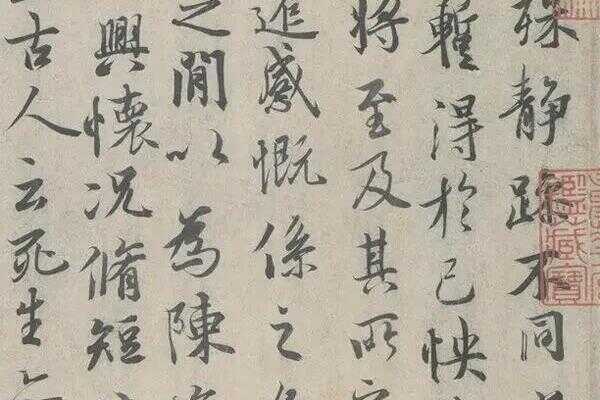 殊静躁不同
暫得於己怏
將至及其所
遷感慨係之
之閒以為陳
興懷况脩短
古人云死生